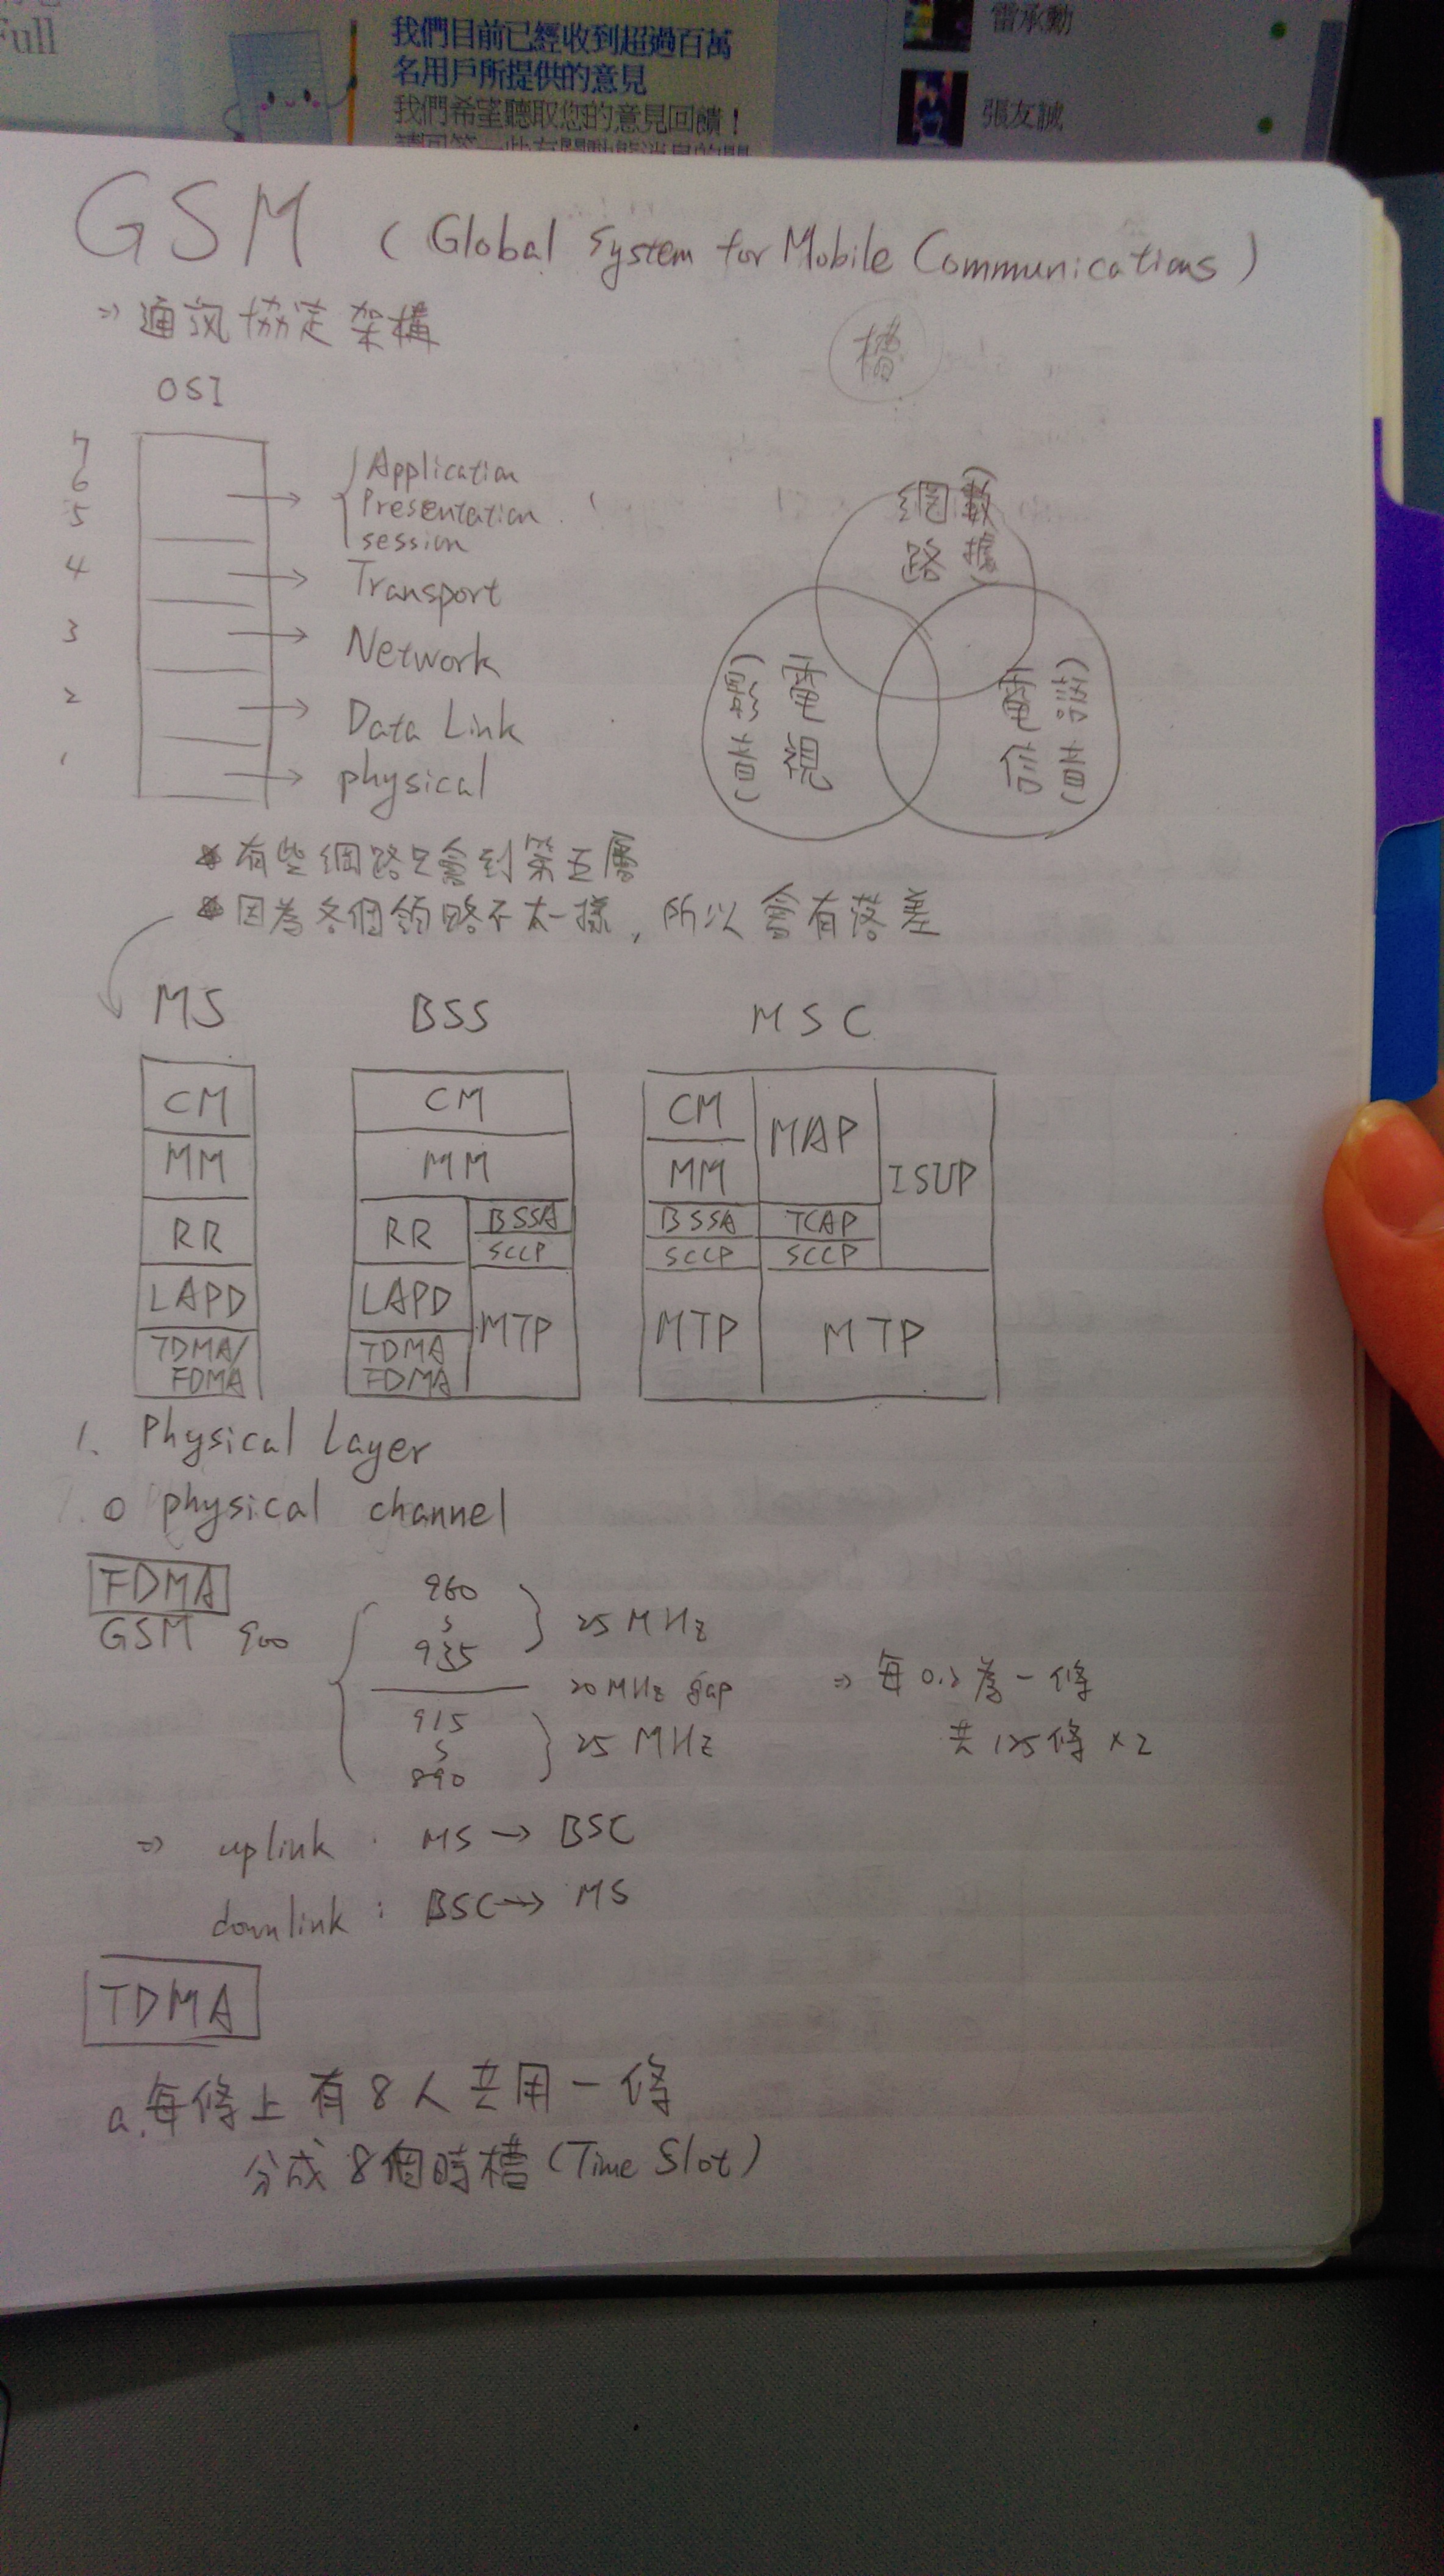 Full
我們目前已經收到超過百萬
名用戶所提供的意見
我們希望聽取您的意見回饋！
雷承勳
張友誠
GSM (Global System for Mobile Communications)
⇒ 通訊協定架構
槽
OSI
7
6
5
4
3
2
1
Application
Presentation
session
Transport
Network
Data Link
physical
網路 (數據)
電視 (影音)
電信 (語音)
* 有些網路只會到第五層
* 因為各個領略不太一樣, 所以會有落差
MS BSS MSC
CM
MM
RR
LAPD
TDMA/
FDMA
CM
MM
RR BSSA
SCCP
LAPD MTP
TDMA
FDMA
CM MAP ISUP
MM
BSSA TCAP
SCCP SCCP
MTP MTP
1. Physical Layer
o physical channel
FDMA
GSM 900
960
935
25 MHz
20 MHz gap
915
890
25 MHz
⇒ 每0.2為一條
共125條 ×2
⇒ uplink : MS → BSC
downlink : BSC → MS
TDMA
a. 每條上有8人共用一條
分成8個時槽 (Time Slot)